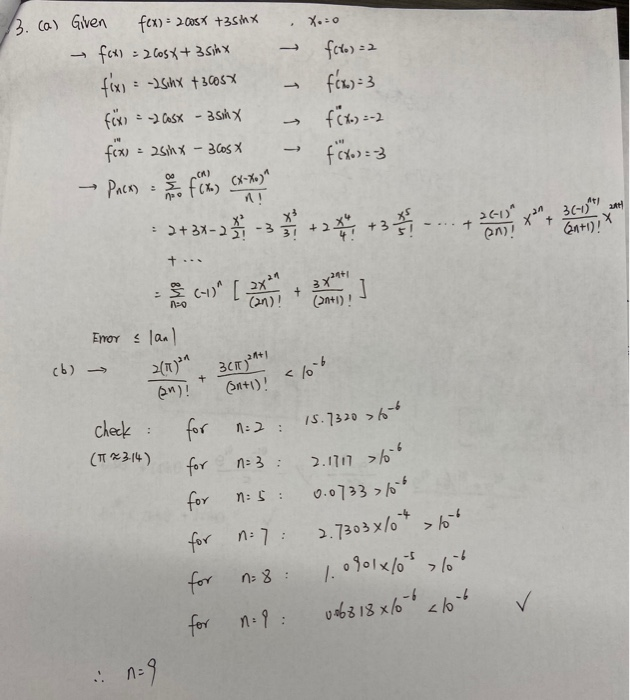 3. (a) Given f(x) = 2cosx + 3sinx , x₀ = 0
→ f(x) = 2cosx + 3sinx → f(x₀) = 2
f'(x) = -2sinx + 3cosx → f'(x₀) = 3
f''(x) = -2cosx - 3sinx → f''(x₀) = -2
f'''(x) = 2sinx - 3cosx → f'''(x₀) = -3
→ Pn(x) = ∑_{n=0}^{∞} f^{(n)}(x₀) (x-x₀)^n / n!
= 2 + 3x - 2 x²/2! - 3 x³/3! + 2 x⁴/4! + 3 x⁵/5! - ... + 2(-1)^n/(2n)! x^{2n} + 3(-1)^{n+1}/(2n+1)! x^{2n+1}
+ ...
= ∑_{n=0}^{∞} (-1)^n [ 2x^{2n}/(2n)! + 3x^{2n+1}/(2n+1)! ]
Error ≤ |an|
(b) → 2(π)^{2n}/(2n)! + 3(π)^{2n+1}/(2n+1)! < 10^{-6}
check : for n=2 : 15.7320 > 10^{-6}
(π ≈ 3.14) for n=3 : 2.1717 > 10^{-6}
for n=5 : 0.0733 > 10^{-6}
for n=7 : 2.7303×10^{-4} > 10^{-6}
for n=8 : 1.0901×10^{-5} > 10^{-6}
for n=9 : × 10^{-6} < 10^{-6} ✓
∴ n=9